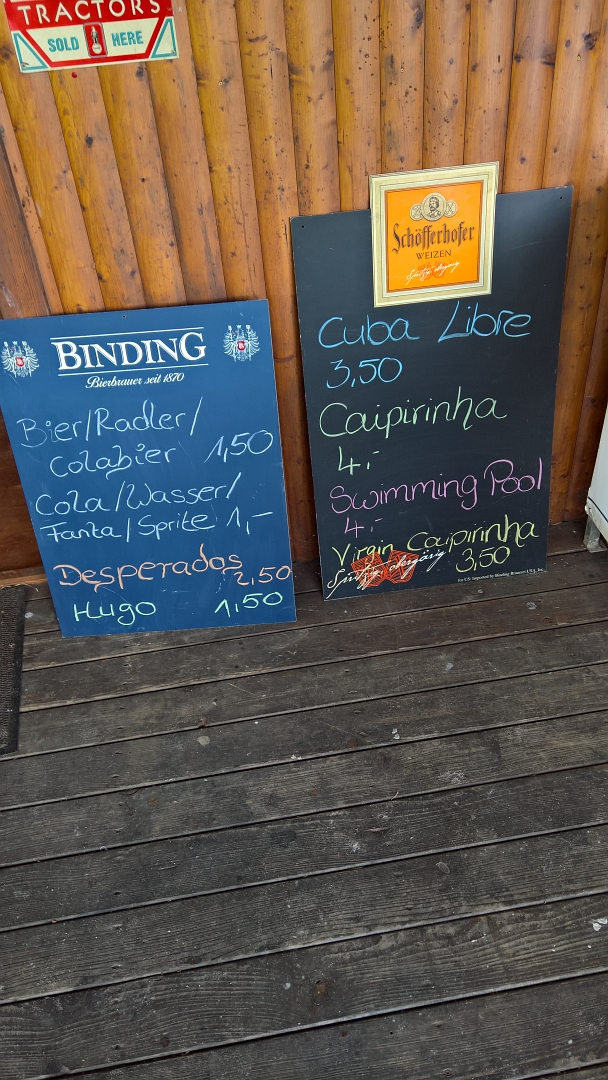 TRACTORS
SOLD HERE
BINDING
Bierbrauer seit 1870
Bier/Radler/
Colabier 1,50
Cola/Wasser/
Fanta/Sprite 1,-
Desperados
2,50
Hugo 1,50
Schöfferhofer
WEIZEN
Spritzig, obergärig
Cuba Libre
3,50
Caipirinha
4,-
Swimming Pool
4,-
Virgin Caipirinha
3,50
Spritzig, obergärig
for US: Imported by Binding Brauerei U.S.A., Inc.